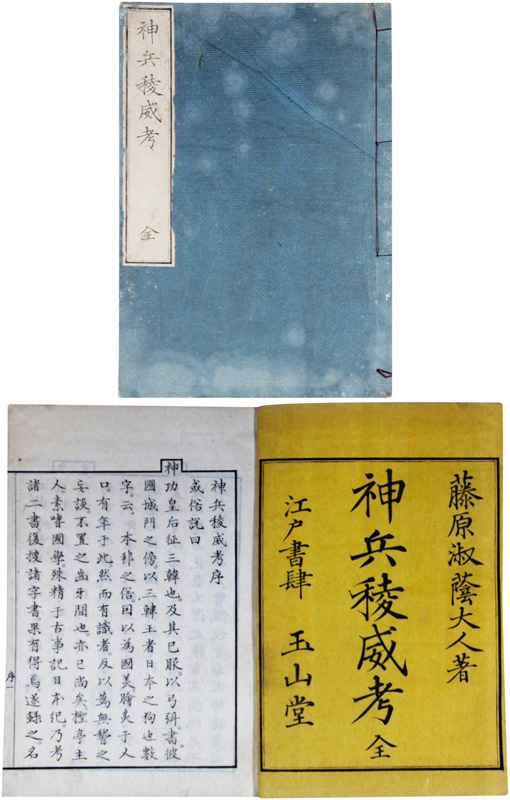 神兵稜威考
全
藤原淑蔭大人著
神兵稜威考 全
江戸書肆 玉山堂
神兵稜威考序
或俗說曰
神功皇后征三韓也及其已服以弓弭書彼
國城門之傍以三韓王者日本之狗也數
字云本邦之俗因以為國美膾炙于人
口有年于此然而有識者反以為無稽之
妄談不置之齒牙間也亦已尚矣檉亭主
人素嗜國學殊精于古事記日本紀乃考
諸二書復搜諸字書果有得焉遂錄之名
序一